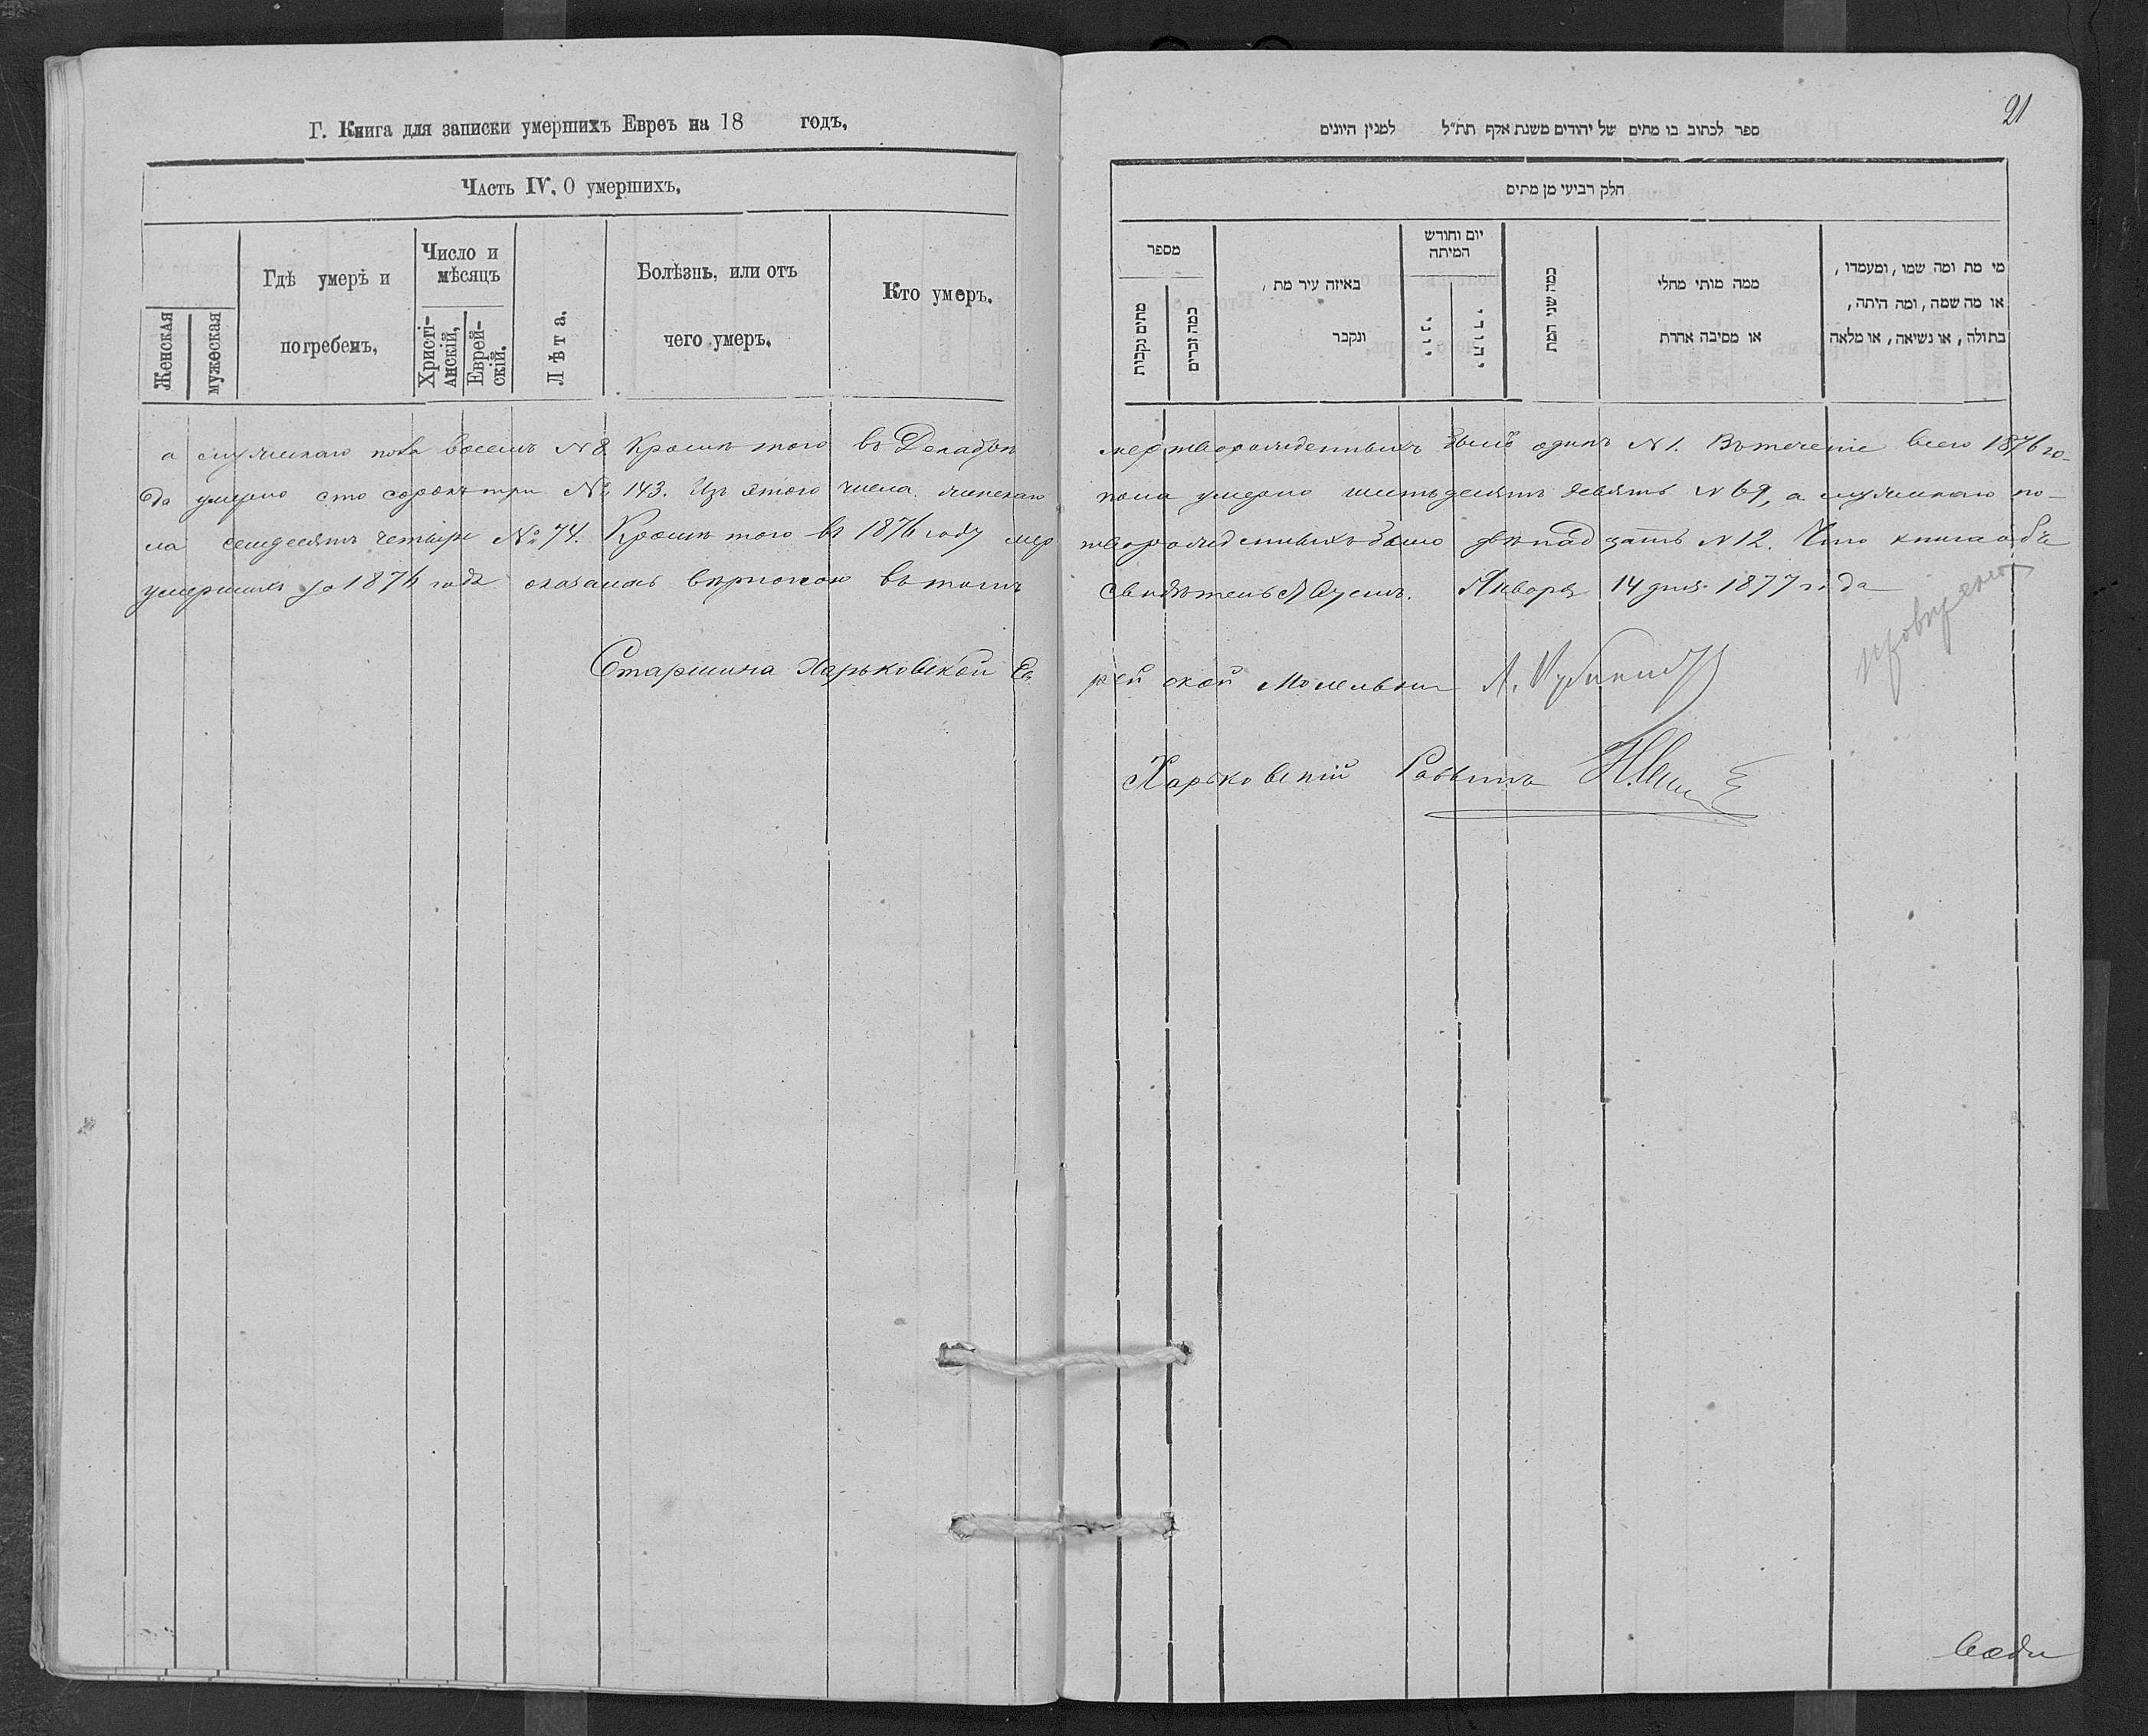 21
Г. Книга для записки умершихъ Евреъ на 18 годъ.
Часть IV. О умершихъ.
Женская
мужеская
Гдѣ умеръ и
погребенъ.
Число и
мѣсяцъ
Христі-
анскій.
Еврей-
скій.
Лѣта.
Болѣзнь, или отъ
чего умеръ.
Кто умеръ.
ספר לכתוב בו מתים של יהודים משנת אלף תת״ל למנין היונים
חלק רביעי מן מתים
מספר
מתים נקבות
כמה זכרים
באיזה עיר מת,
ונקבר
יום וחודש
המיתה
יוני
יהודי
כמה שני המת
ממה מותי מחלי
או מסיבה אחרת
מי מת ומה שמו, ומעמדו,
או מה שמה, ומה היתה,
בתולה, או נשיאה, או מלאה
а мужескаго пола восемь №8. Кромѣ того въ Декабрѣ мертворожденныхъ былъ одинъ №1. Въ теченіе всего 1876 го-
да умерло сто сорокъ три № 143. Изъ этого числа женскаго пола умерло шестьдесятъ девять №69, а мужескаго по-
ла семдесятъ четыре № 74. Кромѣ того въ 1876 году мертворожденныхъ было двѣнадцать №12. Что книга объ
умершихъ за 1876 годъ оказалась вѣрною въ томъ свидѣтельствуемъ. Января 14 дня 1877 года
Старшина Харьковской Еврейской Молельни
Харьковскій Раввинъ
провѣрено